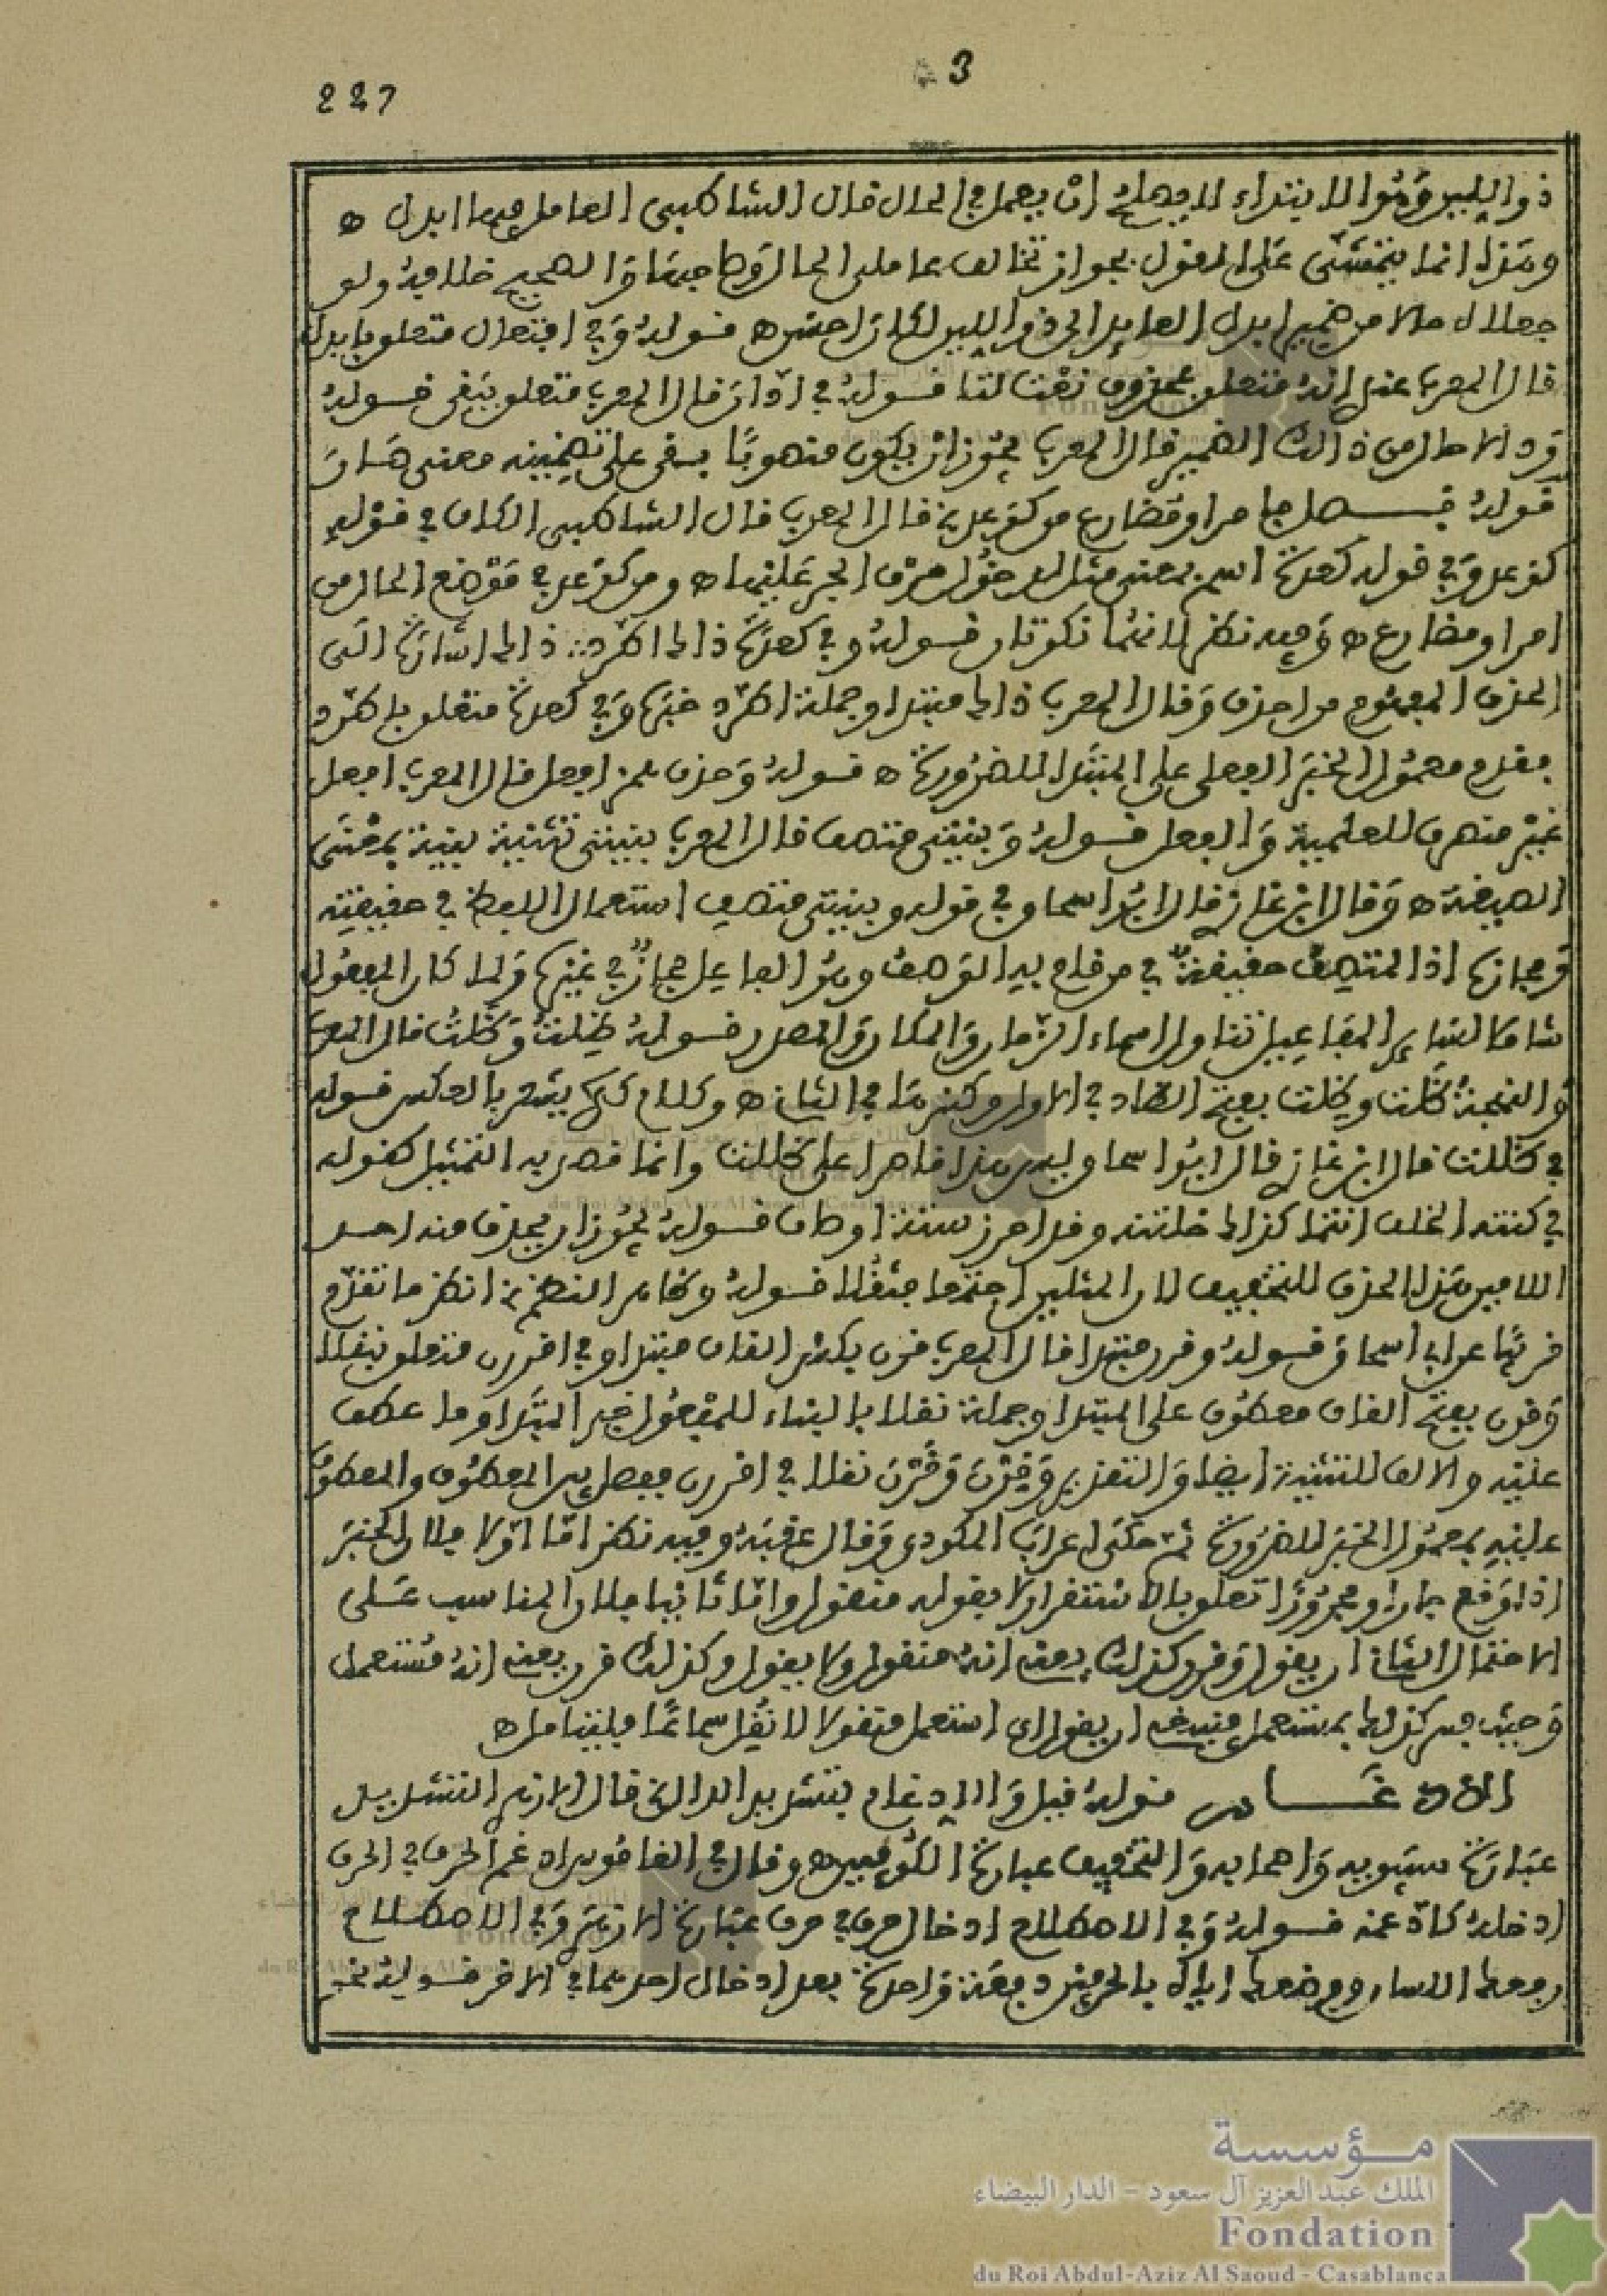 3
227
ذو اللين وهو الابتداء لا يصلح ان يعمل في الحال قال الشاطبي العامل فيها ابدل ه
وهذا انما يتمشى على القول بجواز تخالف عاملي الحال وصاحبها والصحيح خلافه ولو
جعلا حالا من ضمير ابدل العايد الى ذو اللين لكان احسن ه قوله وفي افتعال متعلق بابدل
قال المعرب عندي انه متعلق بمحذوف نعت لتا قوله في ادان قال المعرب متعلق ببقى قوله
ودالا حال من ذالك الضمير قال المعرب يجوز ان يكون منصوبا ببقى على تضمينه معنى صار
قوله فصل فا امر او مضارع من كوعد قال المعرب قال الشاطبي الكاف في قوله
كوعد وفي قوله كعدة اسم بمعنى مثل لدخول حرف الجر عليها ه ومن كوعد في موضع الحال من
امر او مضارع ه وفيه نظر لانهما نكرتان قوله وفي كعدة ذاك اطرد ذاك اشارة الى
الحذف المفهوم من احذف وقال المعرب ذاك مبتدا وجملة اطرد خبره وفي كعدة متعلق باطرد
فقدم معمول الخبر الفعلي على المبتدا للضرورة ه قوله وحذف همز افعل قال المعرب افعل
غير منصرف للعلمية والفعل قوله وبنيتي متصف قال المعرب بنيتي تثنية بنية بمعنى
الصيغة ه وقال ابن غازي قال ابو اسحاق في قوله وبنيتي متصف استعمال اللفظ في حقيقته
ومجازه اذ المتصف حقيقة في من قام به الوصف وهو الفاعل مجاز في غيره ولما كان المفعول
شاركا لساير المفاعيل تناول اسماء الزمان والمكان والمصدر قوله ظللت وظلت قال المعرب
والنجمة ظلت وظلت بفتح الظاء في الاول وكسرها في الثاني ه وكلام يشعر بالعكس قوله
في ظللت قال ابن غازي قال ابو اسحاق وليس هذا قاصرا على ظللت وانما قصد به التمثيل كقوله
في كنته الخلف انتما كذاك خلتنه وقد احرز ستة اوصاف قوله يجوز ان يحذف منه احد
اللامين هذا الحذف للتخفيف لان المثلين اجتمعا فثقلا قوله وظاهر النظم انظر ما تقدم
قريبا عن ابي اسحاق قوله وقرن مبتدا قال المعرب قرن بكسر القاف مبتدا وفي اقررن متعلق بنقلا
وقرن بفتح القاف معطوف على المبتدا وجملة نقلا بالبناء للمفعول خبر المبتدا وما عطف
عليه والالف للتثنية ايضا والتقدير وقرن وقرن نقلا في اقررن ففصل بين المعطوف والمعطوف
عليه بمعمول الخبر للضرورة ثم حكى اعراب المكودي وقال عقبه وفيه نظر اما اولا فلان الخبر
اذا وقع جارا ومجرورا تعلق بالاستقرار لا بقوله منقول واما ثانيا فلان المناسب على
الاحتمال الثاني ان يقول وقرن كذلك بمعنى انه منقول ولا يقول وكذلك قرن بمعنى انه مستعمل
وحيث فسر كذلك بمستعمل فينبغي ان يقول اي استعمل منقولا لا نقل سماعا فليتامل ه
الادغـــام قوله قيل والادغام بتشديد الدال الخ قال الازهري التشديد
عبارة سيبويه واصحابه والتخفيف عبارة الكوفيين ه وقال في القاموس ادغم الحرف في الحرف
ادخله كادغمه قوله وفي الاصطلاح ادخال حرف في حرف عبارة الازهري وفي الاصطلاح
رفعك اللسان ووضعك اياه بالحرفين دفعة واحدة بعد ادخال احدهما في الاخر قوله نحو
مؤسسة
الملك عبد العزيز آل سعود - الدار البيضاء
Fondation
du Roi Abdul-Aziz Al Saoud - Casablanca